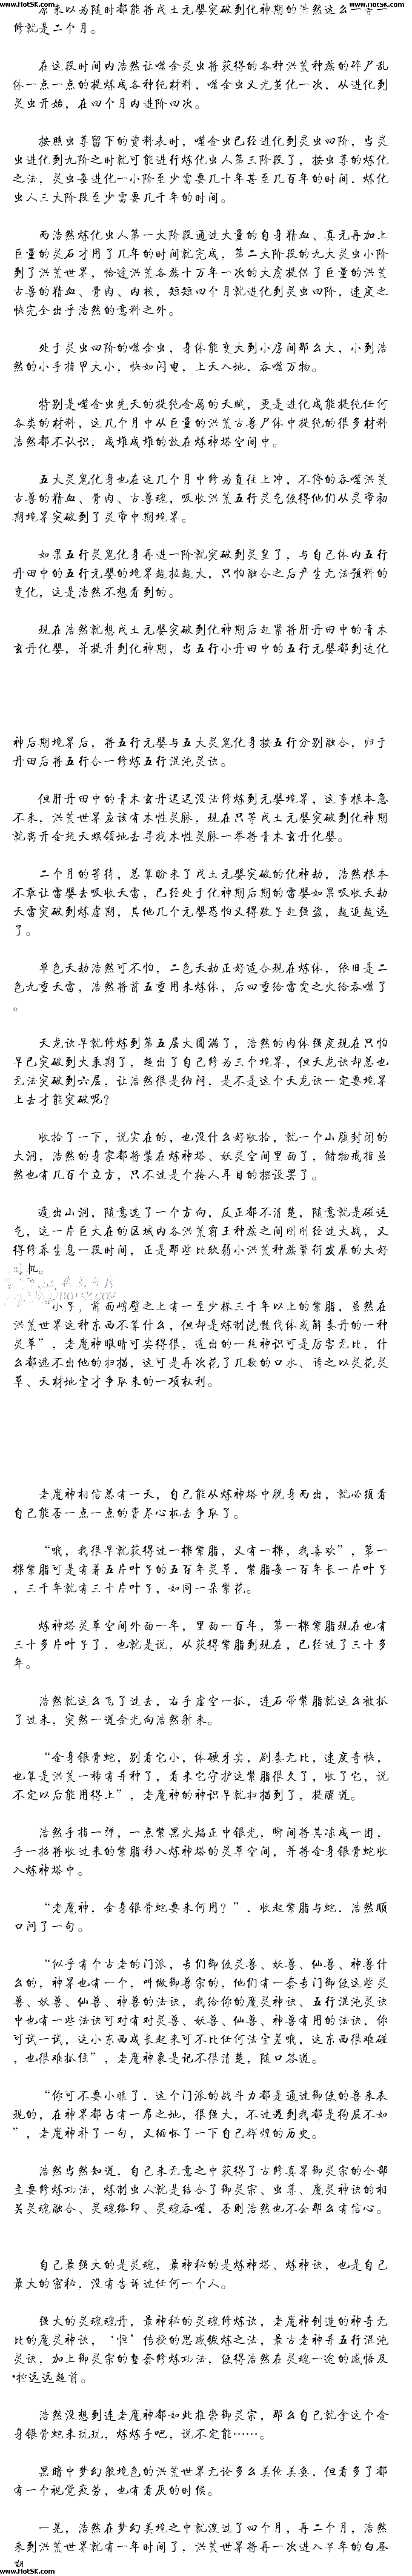 www.HotSK.com www.HotSK.com
原来以为随时都能将戊土元婴突破到化神期的浩然这么一等一
修就是二个月。
在这段时间内浩然让噬金灵虫将获得的各种洪荒种族的碎尸乱
体一点一点的提炼成各种纯材料，噬金虫又光荣化一次，从进化到
灵虫开始，在四个月内进阶四次。
按照虫尊留下的资料表时，噬金虫已经进化到灵虫四阶，当灵
虫进化到九阶之时就可能进行炼化虫人第三阶段了，按虫尊的炼化
之法，灵虫每进化一小阶至少需要几十年甚至几百年的时间，炼化
虫人三大阶段至少需要几千年的时间。
而浩然炼化虫人第一大阶段通过大量的自身精血、真元再加上
巨量的灵石才用了几年的时间就完成，第二大阶段的九大灵虫小阶
到了洪荒世界，恰逢洪荒各族十万年一次的大虐提供了巨量的洪荒
古兽的精血、骨肉、内核，短短四个月就进化到灵虫四阶，速度之
快完全出乎浩然的意料之外。
处于灵虫四阶的噬金虫，身体能变大到小房间那么大，小到浩
然的小手指甲大小，快如闪电，上天入地，吞噬万物。
特别是噬金虫先天的提纯金属的天赋，更是进化成能提纯任何
各类的材料，这几个月中从巨量的洪荒古兽尸体中提纯的很多材料
浩然都不认识，成堆成堆的放在炼神塔空间中。
五大灵鬼化身也在这几个月中修为直往上冲，不停的吞噬洪荒
古兽的精血、骨肉、古兽魂，吸收洪荒五行灵气使得他们从灵帝初
期境界突破到了灵帝中期境界。
如果五行灵鬼化身再进一阶就突破到灵皇了，与自己体内五行
丹田中的五行元婴的境界越拉越大，只怕融合之后产生无法预料的
变化，这是浩然不想看到的。
现在浩然就想戊土元婴突破到化神期后赶紧将肝丹田中的青木
玄丹化婴，并提升到化神期，当五行小丹田中的五行元婴都到达化
神后期境界后，将五行元婴与五大灵鬼化身按五行分别融合，归于
丹田后将五行合一修炼五行混沌灵诀。
但肝丹田中的青木玄丹迟迟没法修炼到元婴境界，这事根本急
不来，洪荒世界应该有木性灵脉，现在只等戊土元婴突破到化神期
就离开金斑天螟领地去寻找木性灵脉一举将青木玄丹化婴。
二个月的等待，总算盼来了戊土元婴突破的化神劫，浩然根本
不敢让雷婴去吸收天雷，已经处于化神期后期的雷婴如果吸收天劫
天雷突破到炼虚期，其他几个元婴恐怕又得鞭子赶强盗，越追越远
了。
单色天劫浩然可不怕，二色天劫正好适合现在炼体，依旧是二
色九重天雷，浩然将前五重用来炼体，后四重给雷霆之火给吞噬了
。
天龙诀早就修炼到第五层大圆满了，浩然的肉体强度现在只怕
早已突破到大乘期了，超出了自己修为三个境界，但天龙诀却总也
无法突破到六层，让浩然很是纳闷，是不是这个天龙诀一定要境界
上去才能突破呢？
收拾了一下，说实在的，也没什么好收拾，就一个山腹封闭的
大洞，浩然的身家都将装在炼神塔、妖灵空间里面了，储物戒指虽
然也有几百个立方，只不过是个掩人耳目的摆设罢了。
遁出山洞，随意选了一个方向，反正都不清楚，随意就是碰运
气，这一片巨大在的区域内各洪荒霸王种族之间刚刚经过大战，又
得修养生息一段时间，正是那些比较弱小洪荒种族繁衍发展的大好
时机。
“小子，前面峭壁之上有一至少株三千年以上的紫脂，虽然在
洪荒世界这种东西不算什么，但却是炼制洗髓伐体或解委丹的一种
灵草”，老魔神眼睛可尖得很，透出的一丝神识可是厉害无比，什
么都逃不出他的扫描，这可是再次花了几歌的口水、诱之以灵花灵
草、天材地宝才争取来的一项权利。
老魔神相信总有一天，自己能从炼神塔中脱身而出，就必须看
自己能否一点一点的费尽心机去争取了。
“哦，我很早就获得过一棵紫脂，又有一棵，我喜欢”，第一
棵紫脂可是有着五片叶子的五百年灵草，紫脂每一百年长一片叶子
，三千年就有三十片叶子，如同一朵紫花。
炼神塔灵草空间外面一年，里面一百年，第一棵紫脂现在也有
三十多片叶子了，也就是说，从获得紫脂到现在，已经过了三十多
年。
浩然就这么飞了过去，右手虚空一抓，连石带紫脂就这么被抓
了过来，突然一道金光向浩然射来。
“金身银骨蛇，别看它小，体硬牙尖，剧毒无比，速度奇快，
也算是洪荒一稀有异种了，看来它守护这紫脂很久了，收了它，说
不定以后能用得上”，老魔神的神识早就扫描到了，提醒道。
浩然手指一弹，一点紫黑火焰正中银光，瞬间将其冻成一团，
手一招将收过来的紫脂移入炼神塔的灵草空间，并将金身银骨蛇收
入炼神塔中。
“老魔神，金身银骨蛇要来何用？”，收起紫脂与蛇，浩然顺
口问了一句。
“似乎有个古老的门派，专们御使灵兽、妖兽、仙兽、神兽什
么的，神界也有一个，叫做御兽宗的，他们有一套专门御使这些灵
兽、妖兽、仙兽、神兽的法诀，我给你的魔灵神诀、五行混沌灵诀
中也有一些法诀可对有对灵兽、妖兽、仙兽、神兽有用的法诀，你
可试一试，这小东西成长起来可不比任何法宝差哦，这东西很难碰
，也很难抓住”，老魔神象是记不很清楚，随口答道。
“你可不要小瞧了，这个门派的战斗力都是通过御使的兽来表
现的，在神界都占有一席之地，很强大，不过遇到我都是狗屁不如
”，老魔神补了一句，又缅怀了一下自己辉煌的历史。
浩然当然知道，自己来无意之中获得了古修真界御灵宗的全部
主要修炼功法，炼制虫人就是结合了御灵宗、虫尊、魔灵神诀的相
关灵魂融合、灵魂烙印、灵魂吞噬，否则浩然也不会那么有信心。
自己最强大的是灵魂，最神秘的是炼神塔、炼神诀，也是自己
最大的密秘，没有告诉过任何一个人。
强大的灵魂魂丹，最神秘的灵魂修炼诀，老魔神创造的神奇无
比的魔灵神诀，‘恒’传授的思感锻炼之法，最古老神哥五行混沌
灵诀，加上御灵宗的整套修炼功法，使得浩然在灵魂一途的感悟及
掌控远远超前。
浩然没想到连老魔神都如此推崇御灵宗，那么自己就拿这个金
身银骨蛇来玩玩，炼炼手吧，说不定能……。
黑暗中梦幻般境色的洪荒世界无论多么美伦美奂，但看多了都
有一个视觉疲劳，也有看厌的时候。
一晃，浩然在梦幻美境之中就渡过了四个月，再二个月，浩然
来到洪荒世界就有一年时间了，洪荒世界将再一次进入半年的白昼
期
www.HotSK.com www.HotSK.com